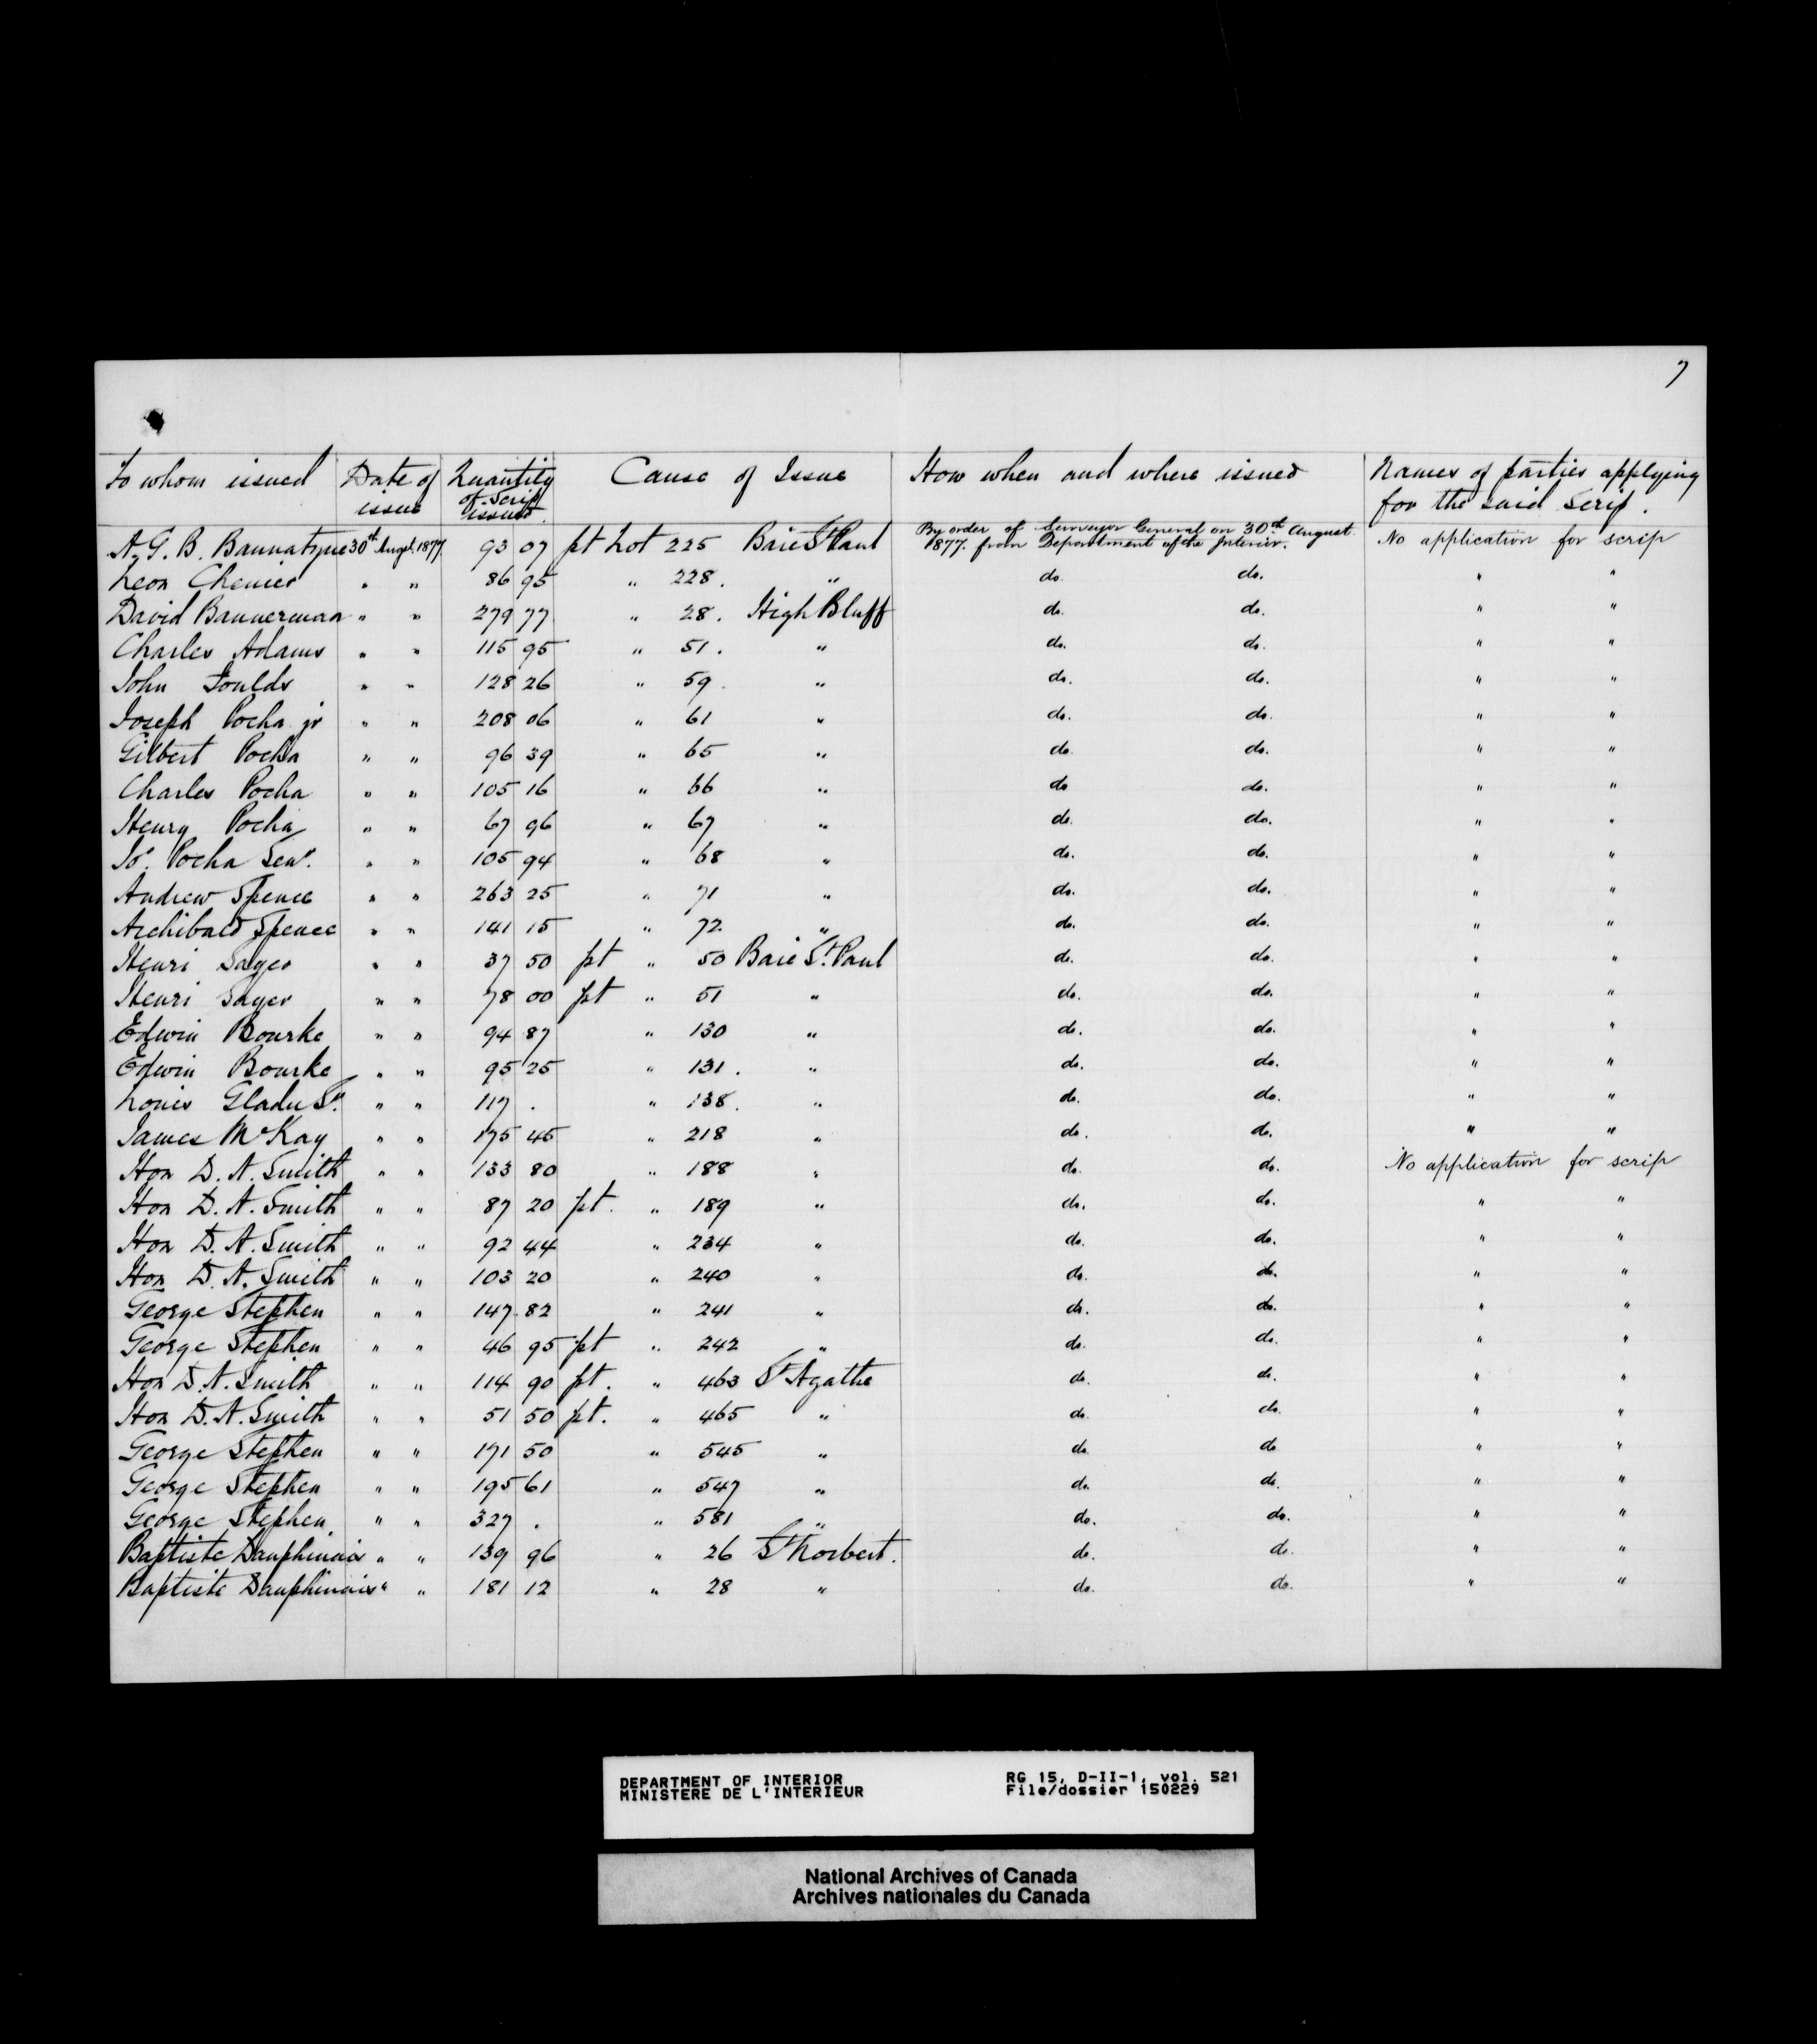 7
To whom issued Date of issue Quantity of Scrip issued Cause of Issue How when and where issued Names of parties applying for the said Scrip.
A. G. B. Bannatyne 30th Augt. 1877. 93 07 pt Lot 225 Baie St Paul By order of Surveyor General on 30th August 1877. from Department of the Interior. No application for scrip
Leon Chenier " " 86 95 " 228. " do. do. " "
David Bannerman " " 279 77 " 28. High Bluff do. do. " "
Charles Adams " " 115 95 " 51. " do. do. " "
John Foulds " " 128 26 " 59. " do. do. " "
Joseph Pocha jr " " 208 06 " 61 " do. do. " "
Gilbert Pocha " " 96 39 " 65 " do. do. " "
Charles Pocha " " 105 16 " 66 " do do. " "
Henry Pocha " " 67 96 " 67 " do. do. " "
Jos. Pocha Senr. " " 105 94 " 68 " do. do. " "
Andrew Spence " " 263 25 " 71 " do. do. " "
Archibald Spence " " 141 15 " 72. " do. do. " "
Henri Sayer " " 37 50 pt " 50 Baie St. Paul do. do. " "
Henri Sayer " " 78 00 pt " 51 " do. do. " "
Edwin Bourke " " 94 87 " 130 " do. do. " "
Edwin Bourke " " 95 25 " 131. " do. do. " "
Louis Gladu Sr. " " 117 . " 138. " do. do. " "
James McKay " " 175 45 " 218 " do. do. " "
Hon D. A. Smith " " 133 80 " 188 " do. do. No application for scrip
Hon D. A. Smith " " 87 20 pt. " 189 " do. do. " "
Hon D. A. Smith " " 92 44 " 234 " do. do. " "
Hon D. A. Smith " " 103 20 " 240 " do. do. " "
George Stephen " " 147. 82 " 241 " do. do. " "
George Stephen " " 46 95 pt " 242 " do. do. " "
Hon D. A. Smith " " 114 90 pt. " 463 St Agathe do. do. " "
Hon D. A. Smith " " 51 50 pt. " 465 " do. do. " "
George Stephen " " 171 50 " 545 " do. do " "
George Stephen " " 195 61 " 547 " do. do. " "
George Stephen " " 327 . " 581 " do. do. " "
Baptiste Dauphinais " " 139 96 " 26 St Norbert. do. do. " "
Baptiste Dauphinais " " 181 12 " 28 " do. do. " "
DEPARTMENT OF INTERIOR RG 15, D-II-1, vol. 521
MINISTERE DE L'INTERIEUR File/dossier 150229
National Archives of Canada
Archives nationales du Canada